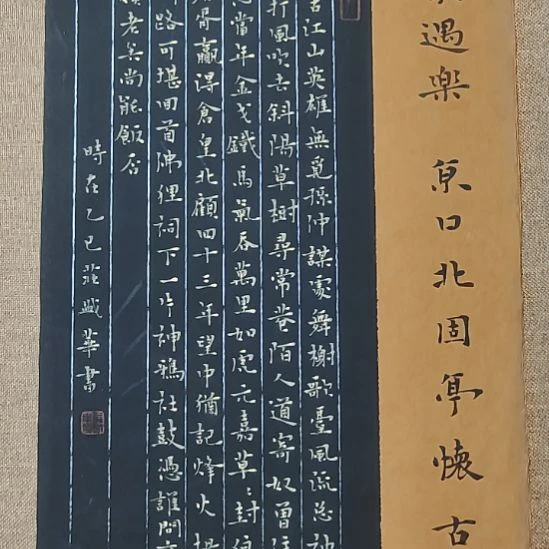 遇樂 京口北固亭懷古
古江山英雄無覓孫仲謀處舞榭歌臺風流總被
打風吹去斜陽草樹尋常巷陌人道寄奴曾住
想當年金戈鐵馬氣吞萬里如虎元嘉草〻封狼
居胥贏得倉皇北顧四十三年望中猶記烽火揚
路可堪回首佛狸祠下一片神鴉社鼓憑誰問
老矣尚能飯否
時在乙巳莊盛華書